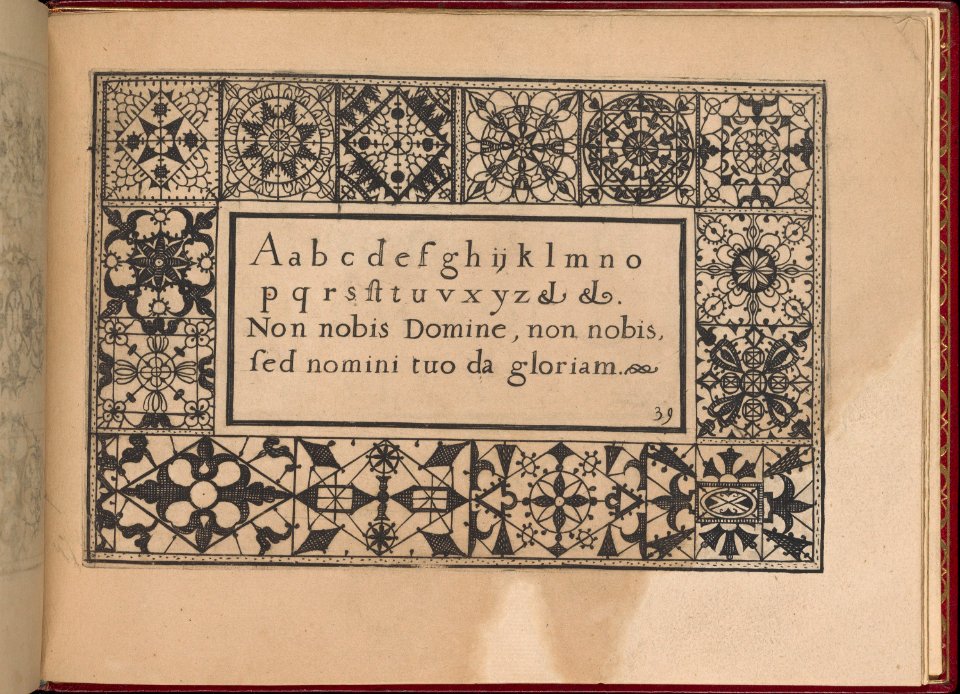 A a b c d e f g h ij k l m n o
p q r s ſt t u v x y z & &.
Non nobis Domine, non nobis,
ſed nomini tuo da gloriam.
39